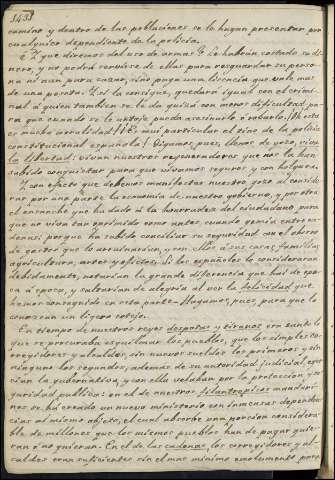 343
camino y dentro de las poblaciones se lo hagan presentar por
cualquier dependiente de la policia.
¿Y que diremos del uso de armas? Le habrán costado su di-
nero, y no podrá servirse de ellas para resguardar su perso-
na ni aun para cazar, sino paga una licencia que vale mas
de una peseta. Y si la consigue, quedará igual con el crimi-
nal á quien tambien se le da quizá con menos dificultad pa-
ra que cuando se le antoje pueda asesinarlo ó robarlo. ¡Oh esta
es mucha igualdad! ¡Es muy particular el tino de la policia
constitucional española! Digamos pues, llenos de gozo, viva
la libertad: vivan nuestros regeneradores que nos la han
sabido conquistar para que vivamos seguros y con sosiego.
Y con efecto que debemos manifestar nuestro gozo al conside-
rar por una parte la economía de nuestro gobierno, y por otra
el ensanche que ha dado á la honradez del ciudadano para
que no viva tan oprimido como antes, cuando gemia entre ca-
denas; porque ha sabido conciliar su seguridad con el ahorro
de gastos que lo arruinarian, y con ellos á sus casas, familias
agricultura, artes y oficios. Si los españoles lo consideraran
debidamente, notarían la grande diferencia que hai de epo-
ca á epoca, y saltarian de alegria al ver la felicidad que
hemos conseguido en esta parte. Hagamos, pues, para que lo
conozcan un ligero cotejo.
En tiempo de nuestros reyes despotas y tiranos era tanto lo
que se procuraba esquilmar los pueblos, que los simples co-
rregidores y alcaldes, sin nuevos sueldos los primeros y sin
ninguno los segundos, ademas de su autoridad judicial, ejer-
cian la gubernativa, y con ella velaban por la proteccion y se-
guridad publica: en el de nuestros filantropicos mandari-
nes se há creado un nuevo ministerio con inmensas dependen-
cias al mismo objeto, el cual absorve una porcion considera-
ble de millones que los mismos pueblos han de pagar quie-
ran ó no quieran. En el de las cadenas, los corregidores y al-
caldes eran suficientes sin el mas minimo emolumento para